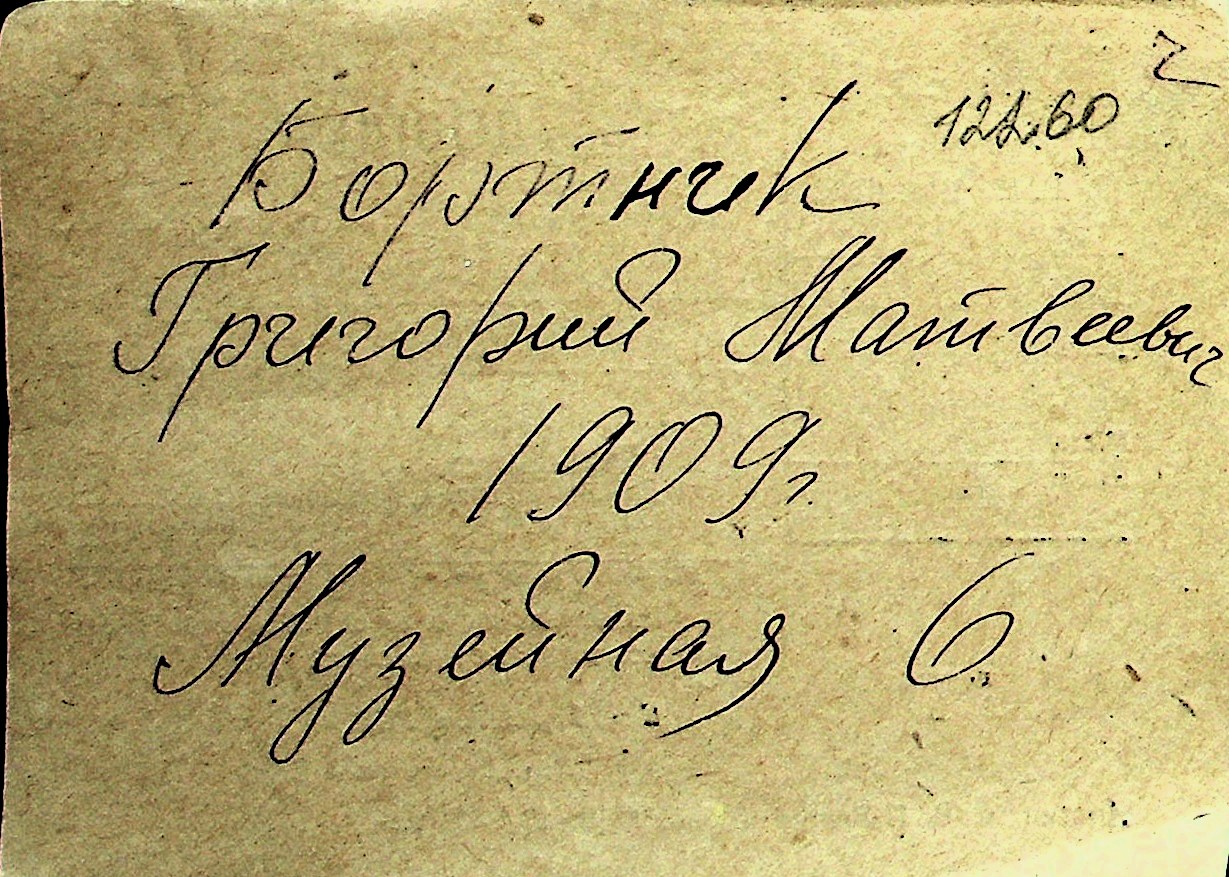 Бортник
Григорий Матвеевич
1909г
Музейная 6